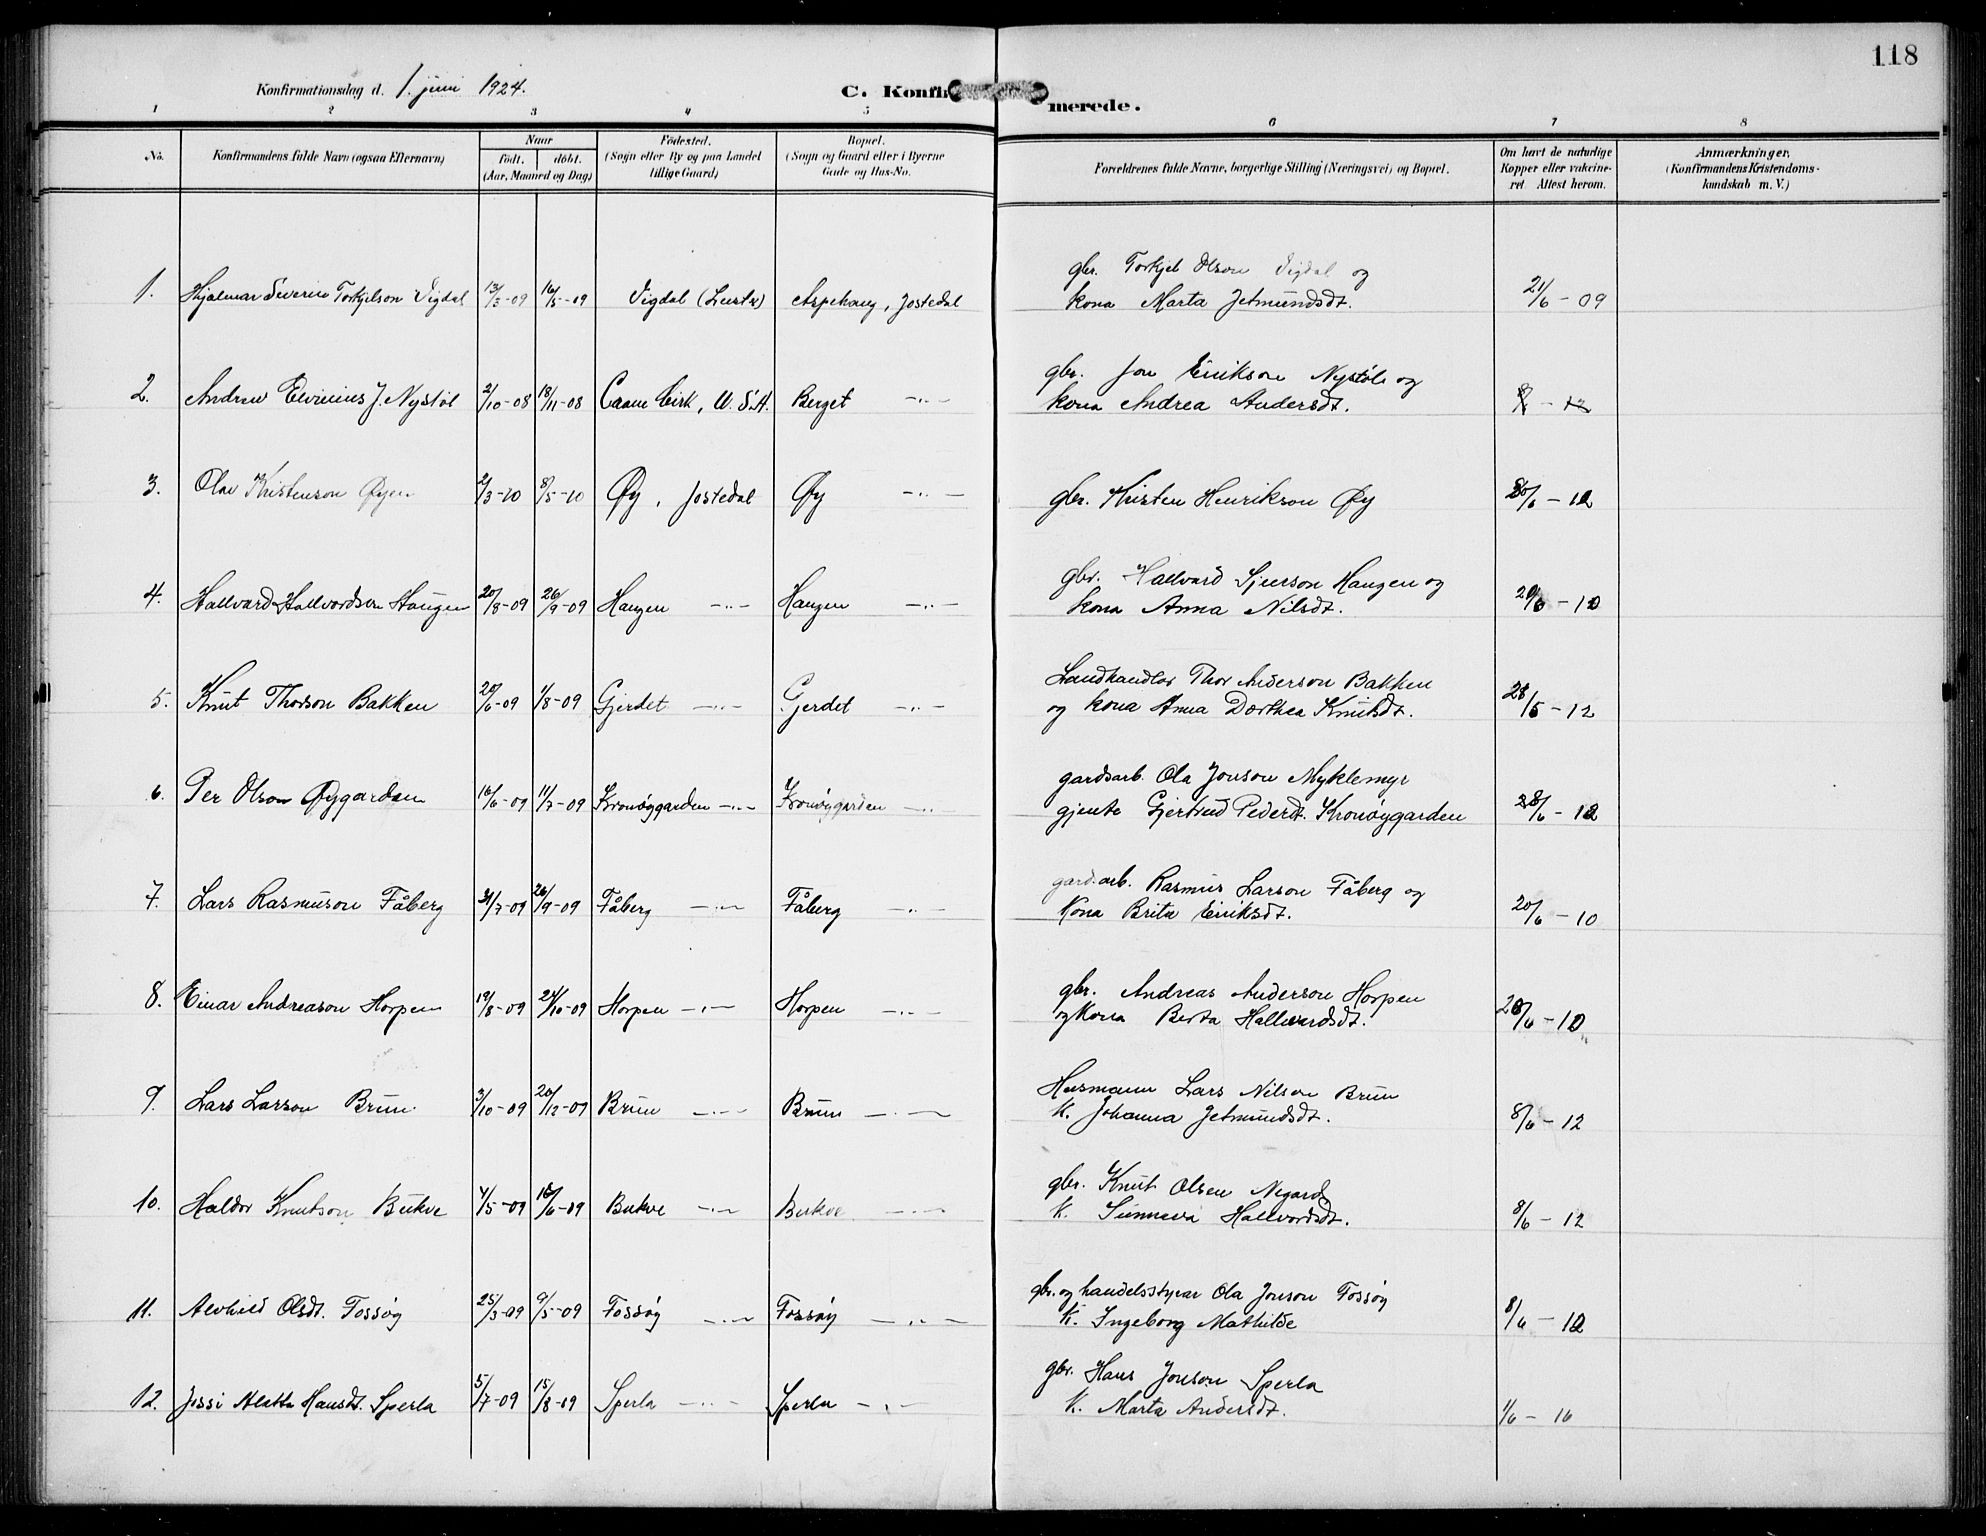 118
Konfirmationsdag d. 1. juni 1924.
C. Konfirmerede.
1 2 3 4 5 6 7 8
No.
Konfirmandens fulde Navn (ogsaa Efternavn)
Naar
födt. döbt.
(Aar, Maaned og Dag)
Födested.
(Sogn eller By og paa Landet
tillige Gaard)
Bopæl.
(Sogn og Gaard eller i Byerne
Gade og Hus-No.
Forældrenes fulde Navne, borgerlige Stilling (Næringsvei) og Bopæl.
Om havt de naturlige
Kopper eller vakcine-
ret. Attest herom.
Anmærkninger,
(Konfirmandens Kristendoms-
kundskab m. V.)
gbr. Torkjel Olson Vigdal og
1. Hjalmar Severin Torkjelson Vigdal 13/3-09 16/5-09 Vigdal (Luster) Aspehaug, Jostedal kona Marta Jetmundsdt. 21/6-09
gbr. Jon Erikson Nystöl og
2. Andrew Elvinius J. Nystöl 2/10-08 18/11-08 U.S.A. Berget -"- kona Andrea Andersdt.
3. Olav Kristenson Øyen 2/3-10 8/5-10 Øy, Jostedal Øy -"- gbr. Kristen Henrikson Øy
gbr. Hallvard Sjurson Haugen og
4. Hallvard Hallvardson Haugen 20/8-09 26/9-09 Haugen -"- Haugen -"- kona Anna Nilsdt.
Landhandlar Thor Anderson Bakken
5. Knut Thorson Bakken 20/6-09 1/8-09 Gjerdet -"- Gjerdet -"- og kona Anna Dorthea Knutsdt. 28/5-12
gardsarb. Ola Jonson Myklemyr
6. Per Olson Øygarden 16/6-09 11/7-09 Kronöygarden -"- Kronöygarden -"- gjente Gjertrud Pedersdt. Kronöygarden
gardarb. Rasmus Larson Fåberg og
7. Lars Rasmuson Fåberg 31/7-09 26/9-09 Fåberg -"- Fåberg -"- Kona Brita Eriksdt. 20/6-10
gbr. Andreas Anderson Horpen
8. Einar Andreason Horpen 19/8-09 24/10-09 Horpen -"- Horpen -"- og kona Berta Hallvardsdt.
Husmann Lars Nilson Brun
9. Lars Larson Brun 3/10-09 20/12-09 Brun -"- Brun -"- K. Johanna Jetmundsdt. 8/6-12
gbr. Knut Olsen Negard
10. Haldor Knutson Bukve 4/5-09 Bukve -"- Bukve -"- K. Sunneva Hallvordsdt. 8/6-12
gbr. og handelsstyrar Ola Jonson Fossöy
11. Alvhild Olsdt. Fossöy 25/3-09 9/5-09 Fossöy -"- Fossöy -"- K. Ingeborg Mathilde 8/6-12
gbr. Hans Jonson Sperla
12. Hansdt. Sperla 5/7-09 15/8-09 Sperla -"- Sperla -"- K. Marta Andersdt. 1/6-16